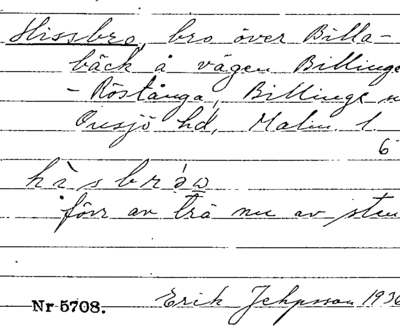 Hissbro, bro över Billa-
bäck å vägen Billinge
- Röstånga, Billinge
Onsjö hd, Malm. l
6
hìsbrów
förr av trä nu av sten
Nr 5708. Erik Jehpsson 1936